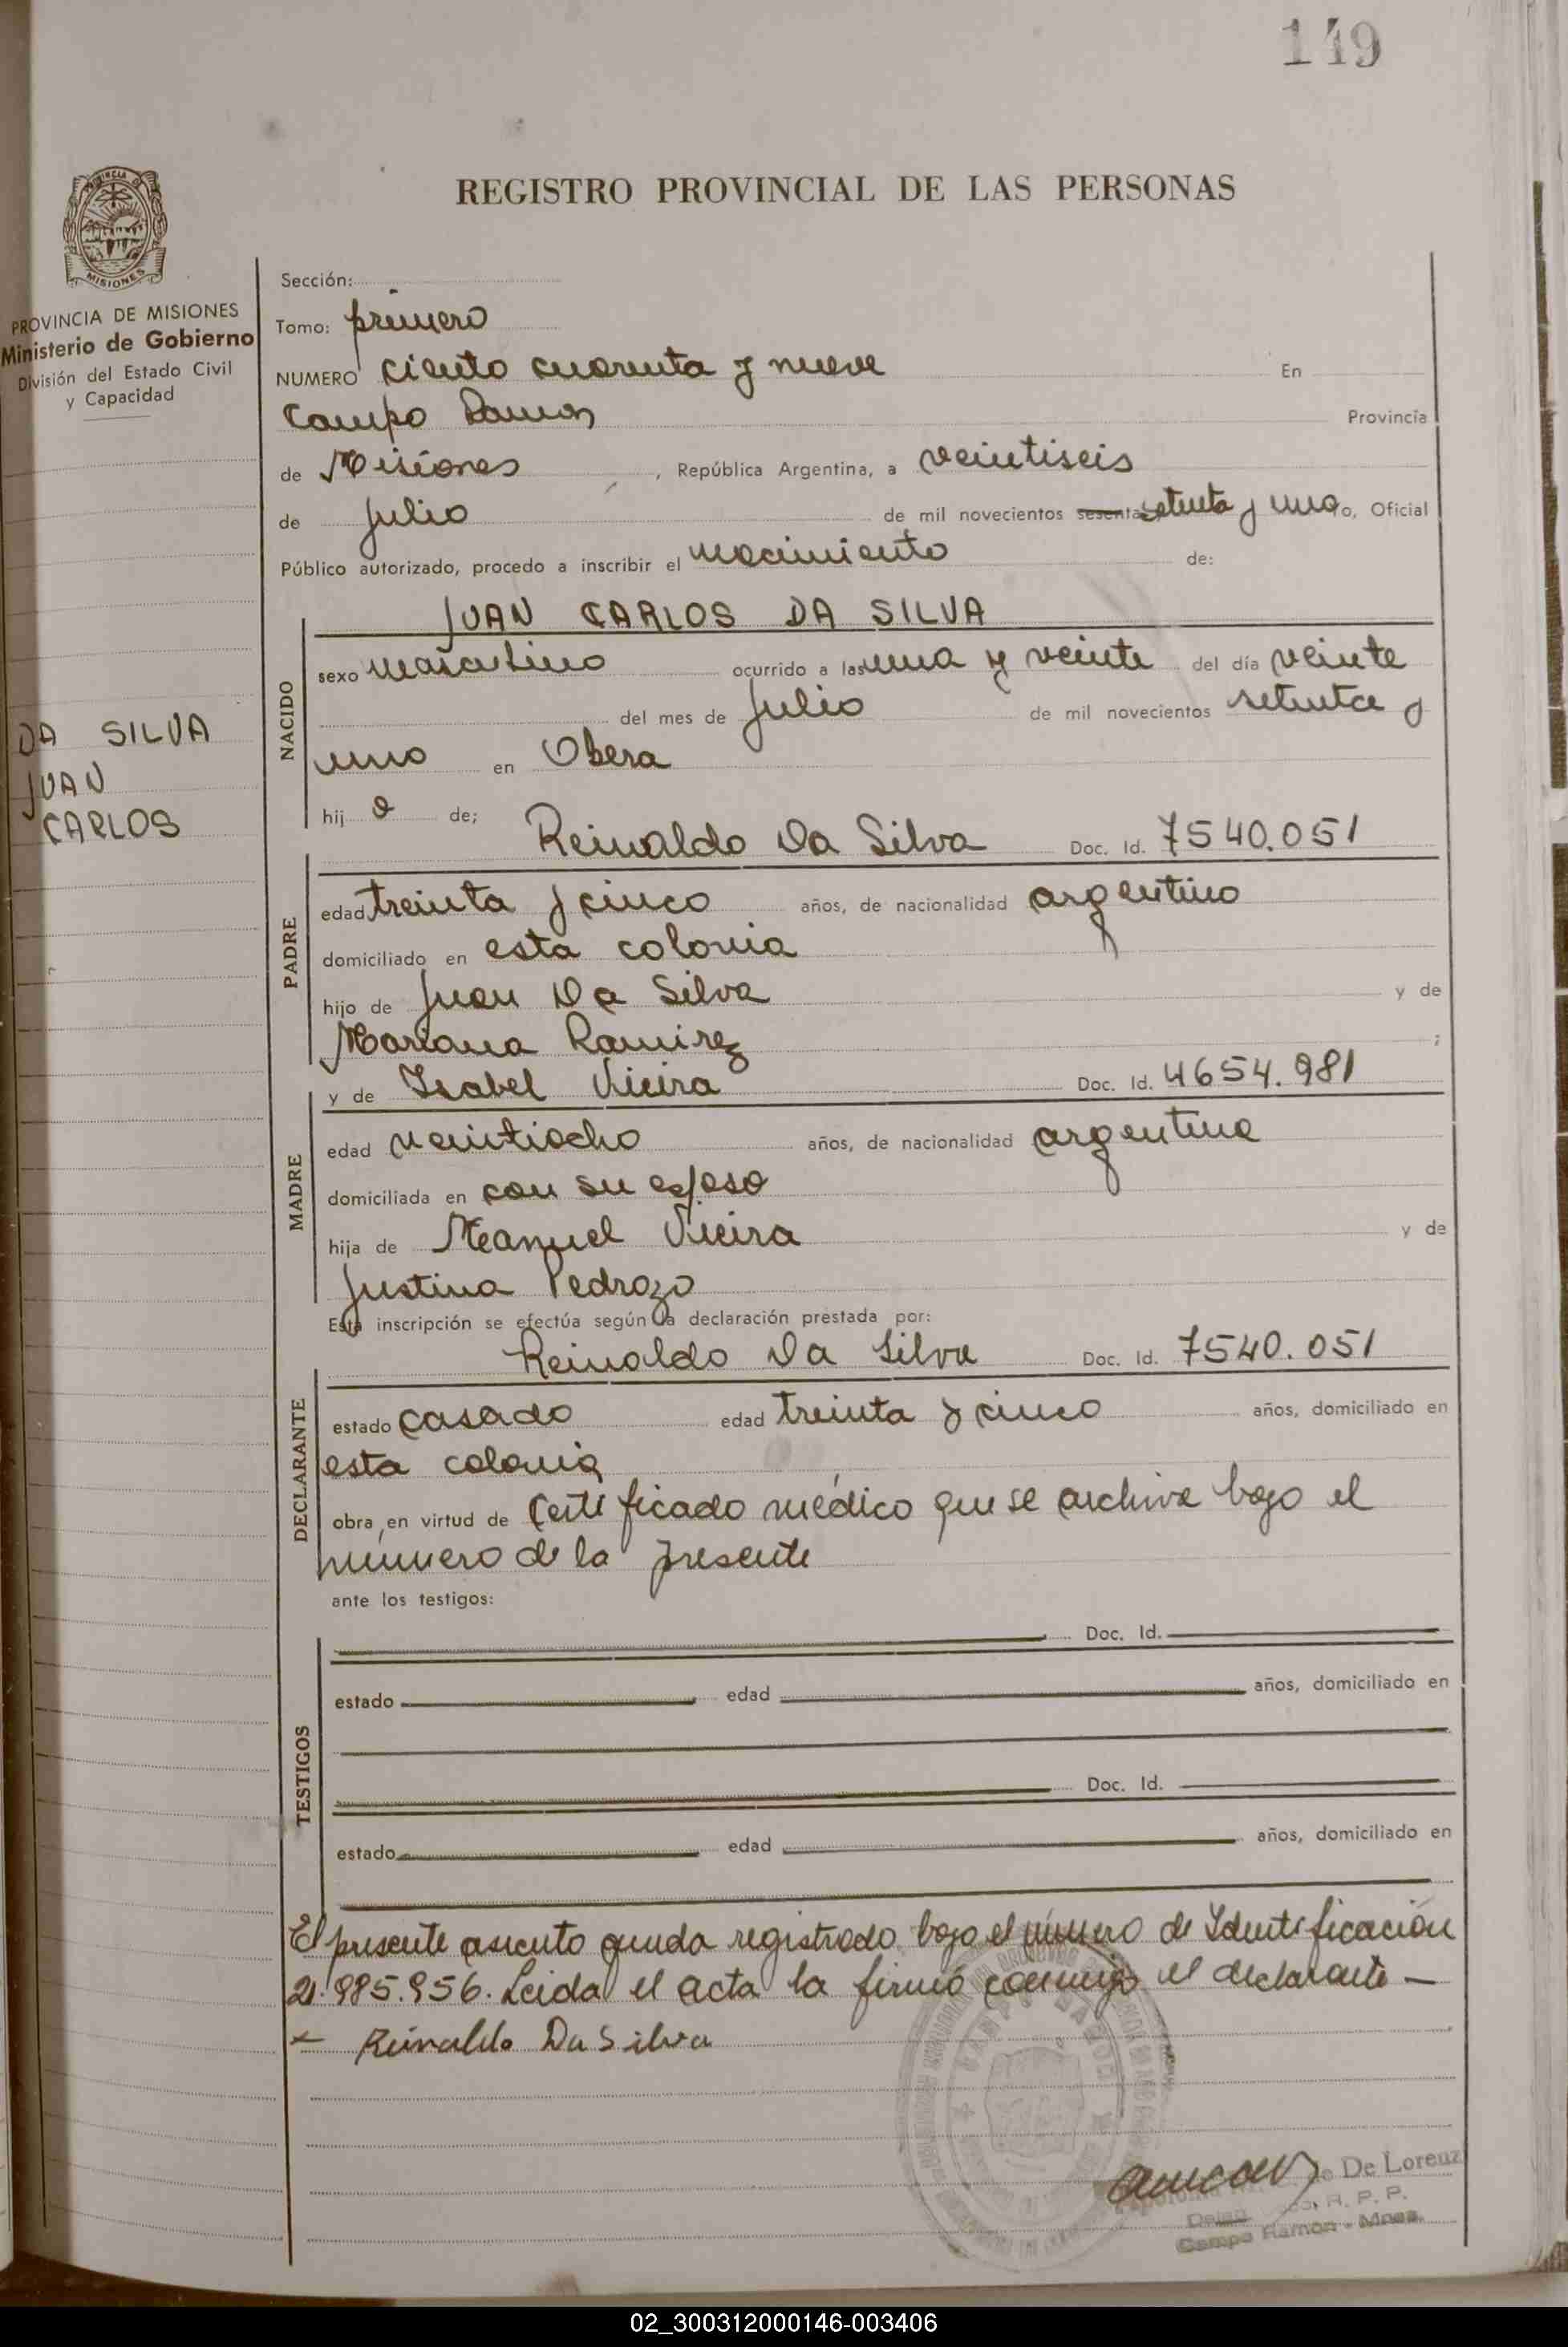 149
REGISTRO PROVINCIAL DE LAS PERSONAS
PROVINCIA DE MISIONES
Ministerio de Gobierno
División del Estado Civil
y Capacidad
DA SILVA
JUAN
CARLOS
Sección:
Tomo: primero
NUMERO ciento cuarenta y nueve En
Campo Ramon Provincia
de Misiones, República Argentina, a veintiseis
de Julio de mil novecientos sesenta setenta y uno yo, Oficial
Público autorizado, procedo a inscribir el nacimiento de:
JUAN CARLOS DA SILVA
NACIDO
sexo masculino ocurrido a las una y veinte del día veinte
del mes de Julio de mil novecientos setenta y
uno en Obera
hij o de;
Reinaldo Da Silva Doc. Id. 7540.051
PADRE
edad treinta y cinco años, de nacionalidad argentino
domiciliado en esta colonia
hijo de Juan Da Silva y de
Mariana Ramirez ;
y de Isabel Vieira Doc. Id. 4654.981
MADRE
edad veintiocho años, de nacionalidad argentina
domiciliada en con su esposo
hija de Manuel Vieira y de
Justina Pedrozo
Esta inscripción se efectúa según la declaración prestada por:
Reinaldo Da Silva Doc. Id. 7540.051
DECLARANTE
estado casado edad treinta y cinco años, domiciliado en
esta colonia
obra en virtud de Certificado médico que se archiva bajo el
número de la presente
ante los testigos:
TESTIGOS
Doc. Id.
estado edad años, domiciliado en
Doc. Id.
estado edad años, domiciliado en
El presente asiento queda registrado bajo el número de Identificación
21.985.956. Leida el acta la firmó conmigo el declarante —
Reinaldo Da Silva
De Lorenz
R. P. P.
Campo Ramon - Mnes.
02_300312000146-003406